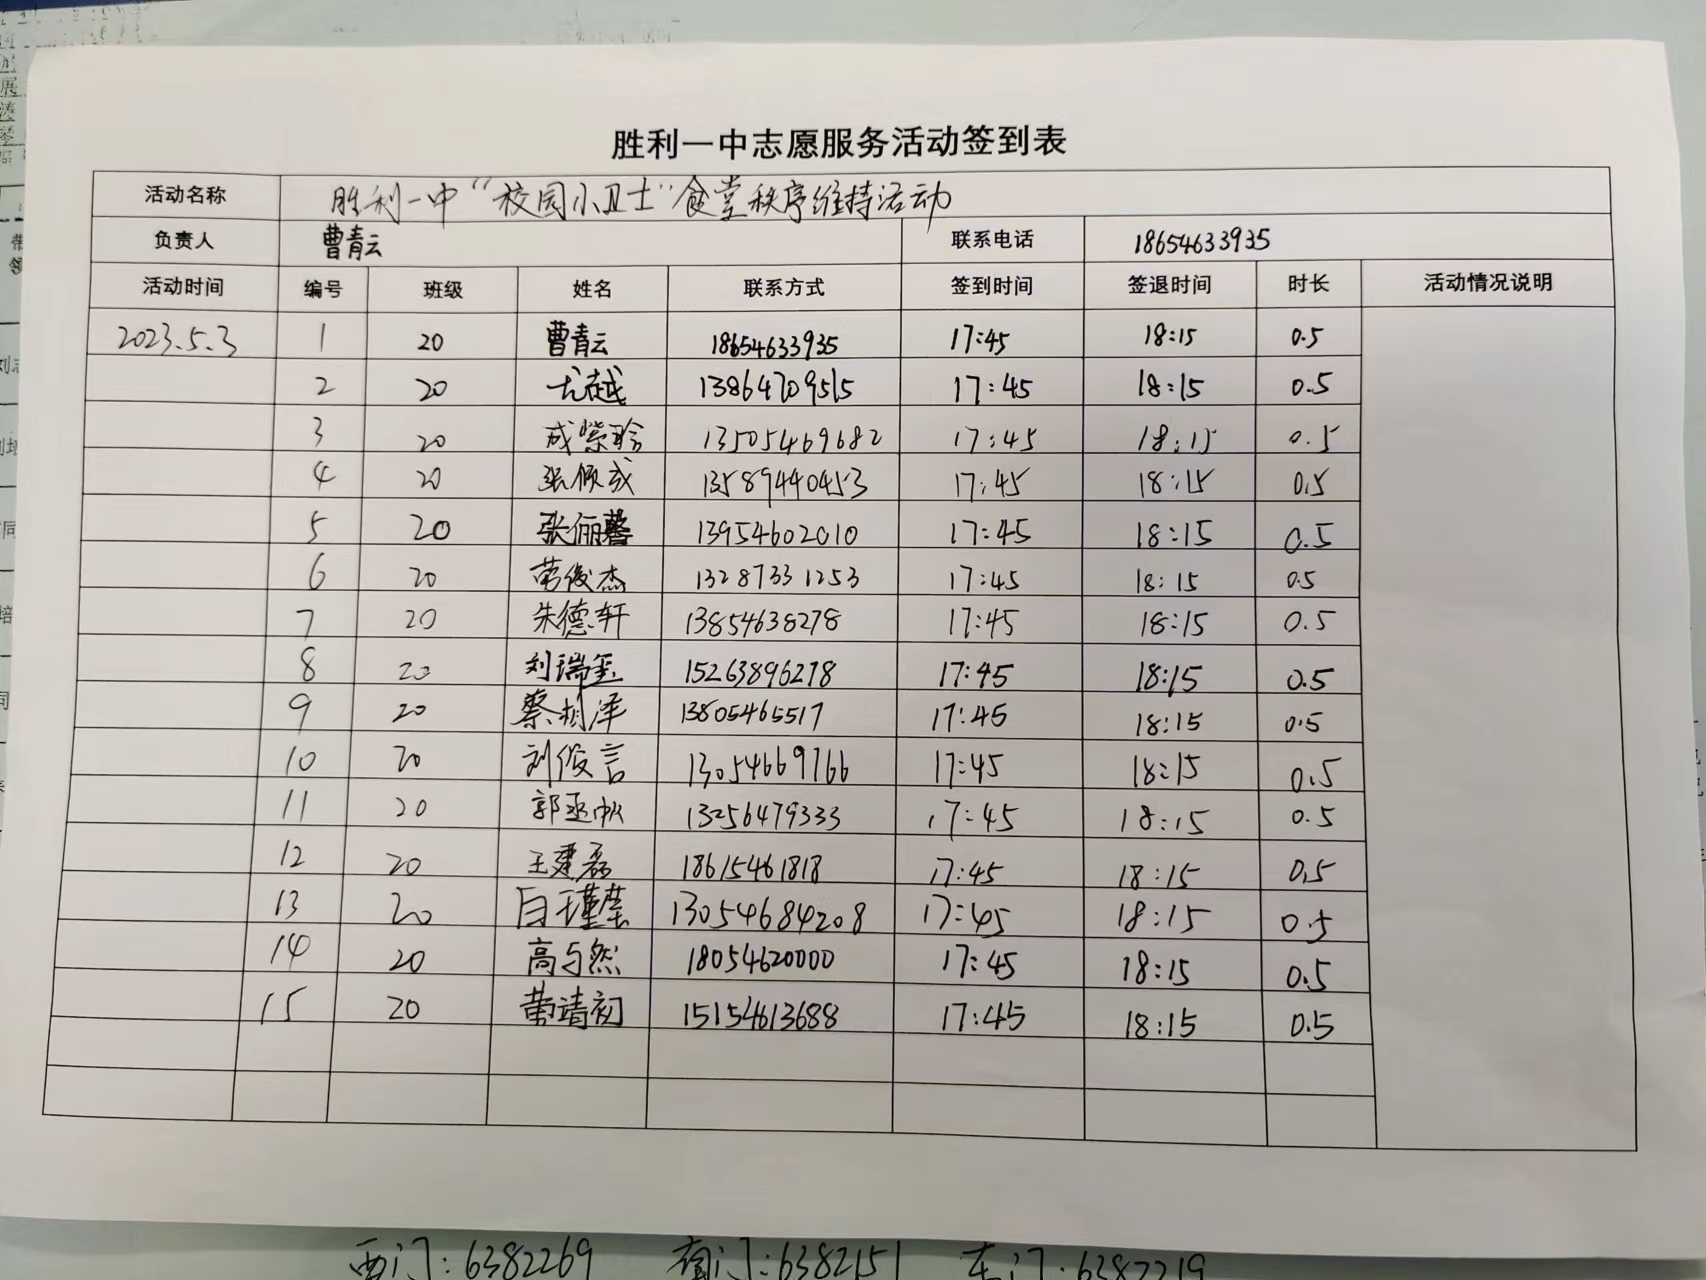 胜利一中志愿服务活动签到表
活动名称 胜利一中“校园小卫士”食堂秩序维持活动
负责人 曹青云 联系电话 18654633935
活动时间 编号 班级 姓名 联系方式 签到时间 签退时间 时长 活动情况说明
2023.5.3 1 20 曹青云 18654633935 17:45 18:15 0.5
2 20 尤越 13864709515 17:45 18:15 0.5
3 20 成紫聆 13505469682 17:45 18:15 0.5
4 20 张佩成 13589440453 17:45 18:15 0.5
5 20 张俪馨 13954602010 17:45 18:15 0.5
6 20 劳俊杰 13287331253 17:45 18:15 0.5
7 20 朱德轩 13854638278 17:45 18:15 0.5
8 20 刘瑞玺 15263896278 17:45 18:15 0.5
9 20 蔡树泽 13805465517 17:45 18:15 0.5
10 20 刘俊言 13054669766 17:45 18:15 0.5
11 20 郭丞 13256479333 17:45 18:15 0.5
12 20 王建磊 18615461818 17:45 18:15 0.5
13 20 白瑾莹 13054684208 17:45 18:15 0.5
14 20 高与然 18054620000 17:45 18:15 0.5
15 20 靖初 15154613688 17:45 18:15 0.5
西门:6382269 南门:6382151 东门:6382219